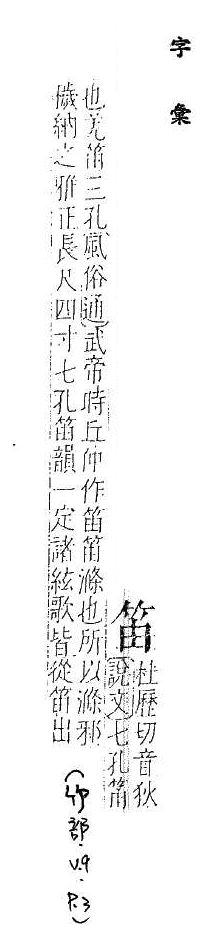 字彙
笛
杜歷切音狄
說文七孔筩
也羌笛三孔風俗通武帝時丘仲作笛笛滌也所以滌邪
穢納之雅正長尺四寸七孔笛韻一定諸絃歌皆從笛出
(竹部.V.9.P.3)